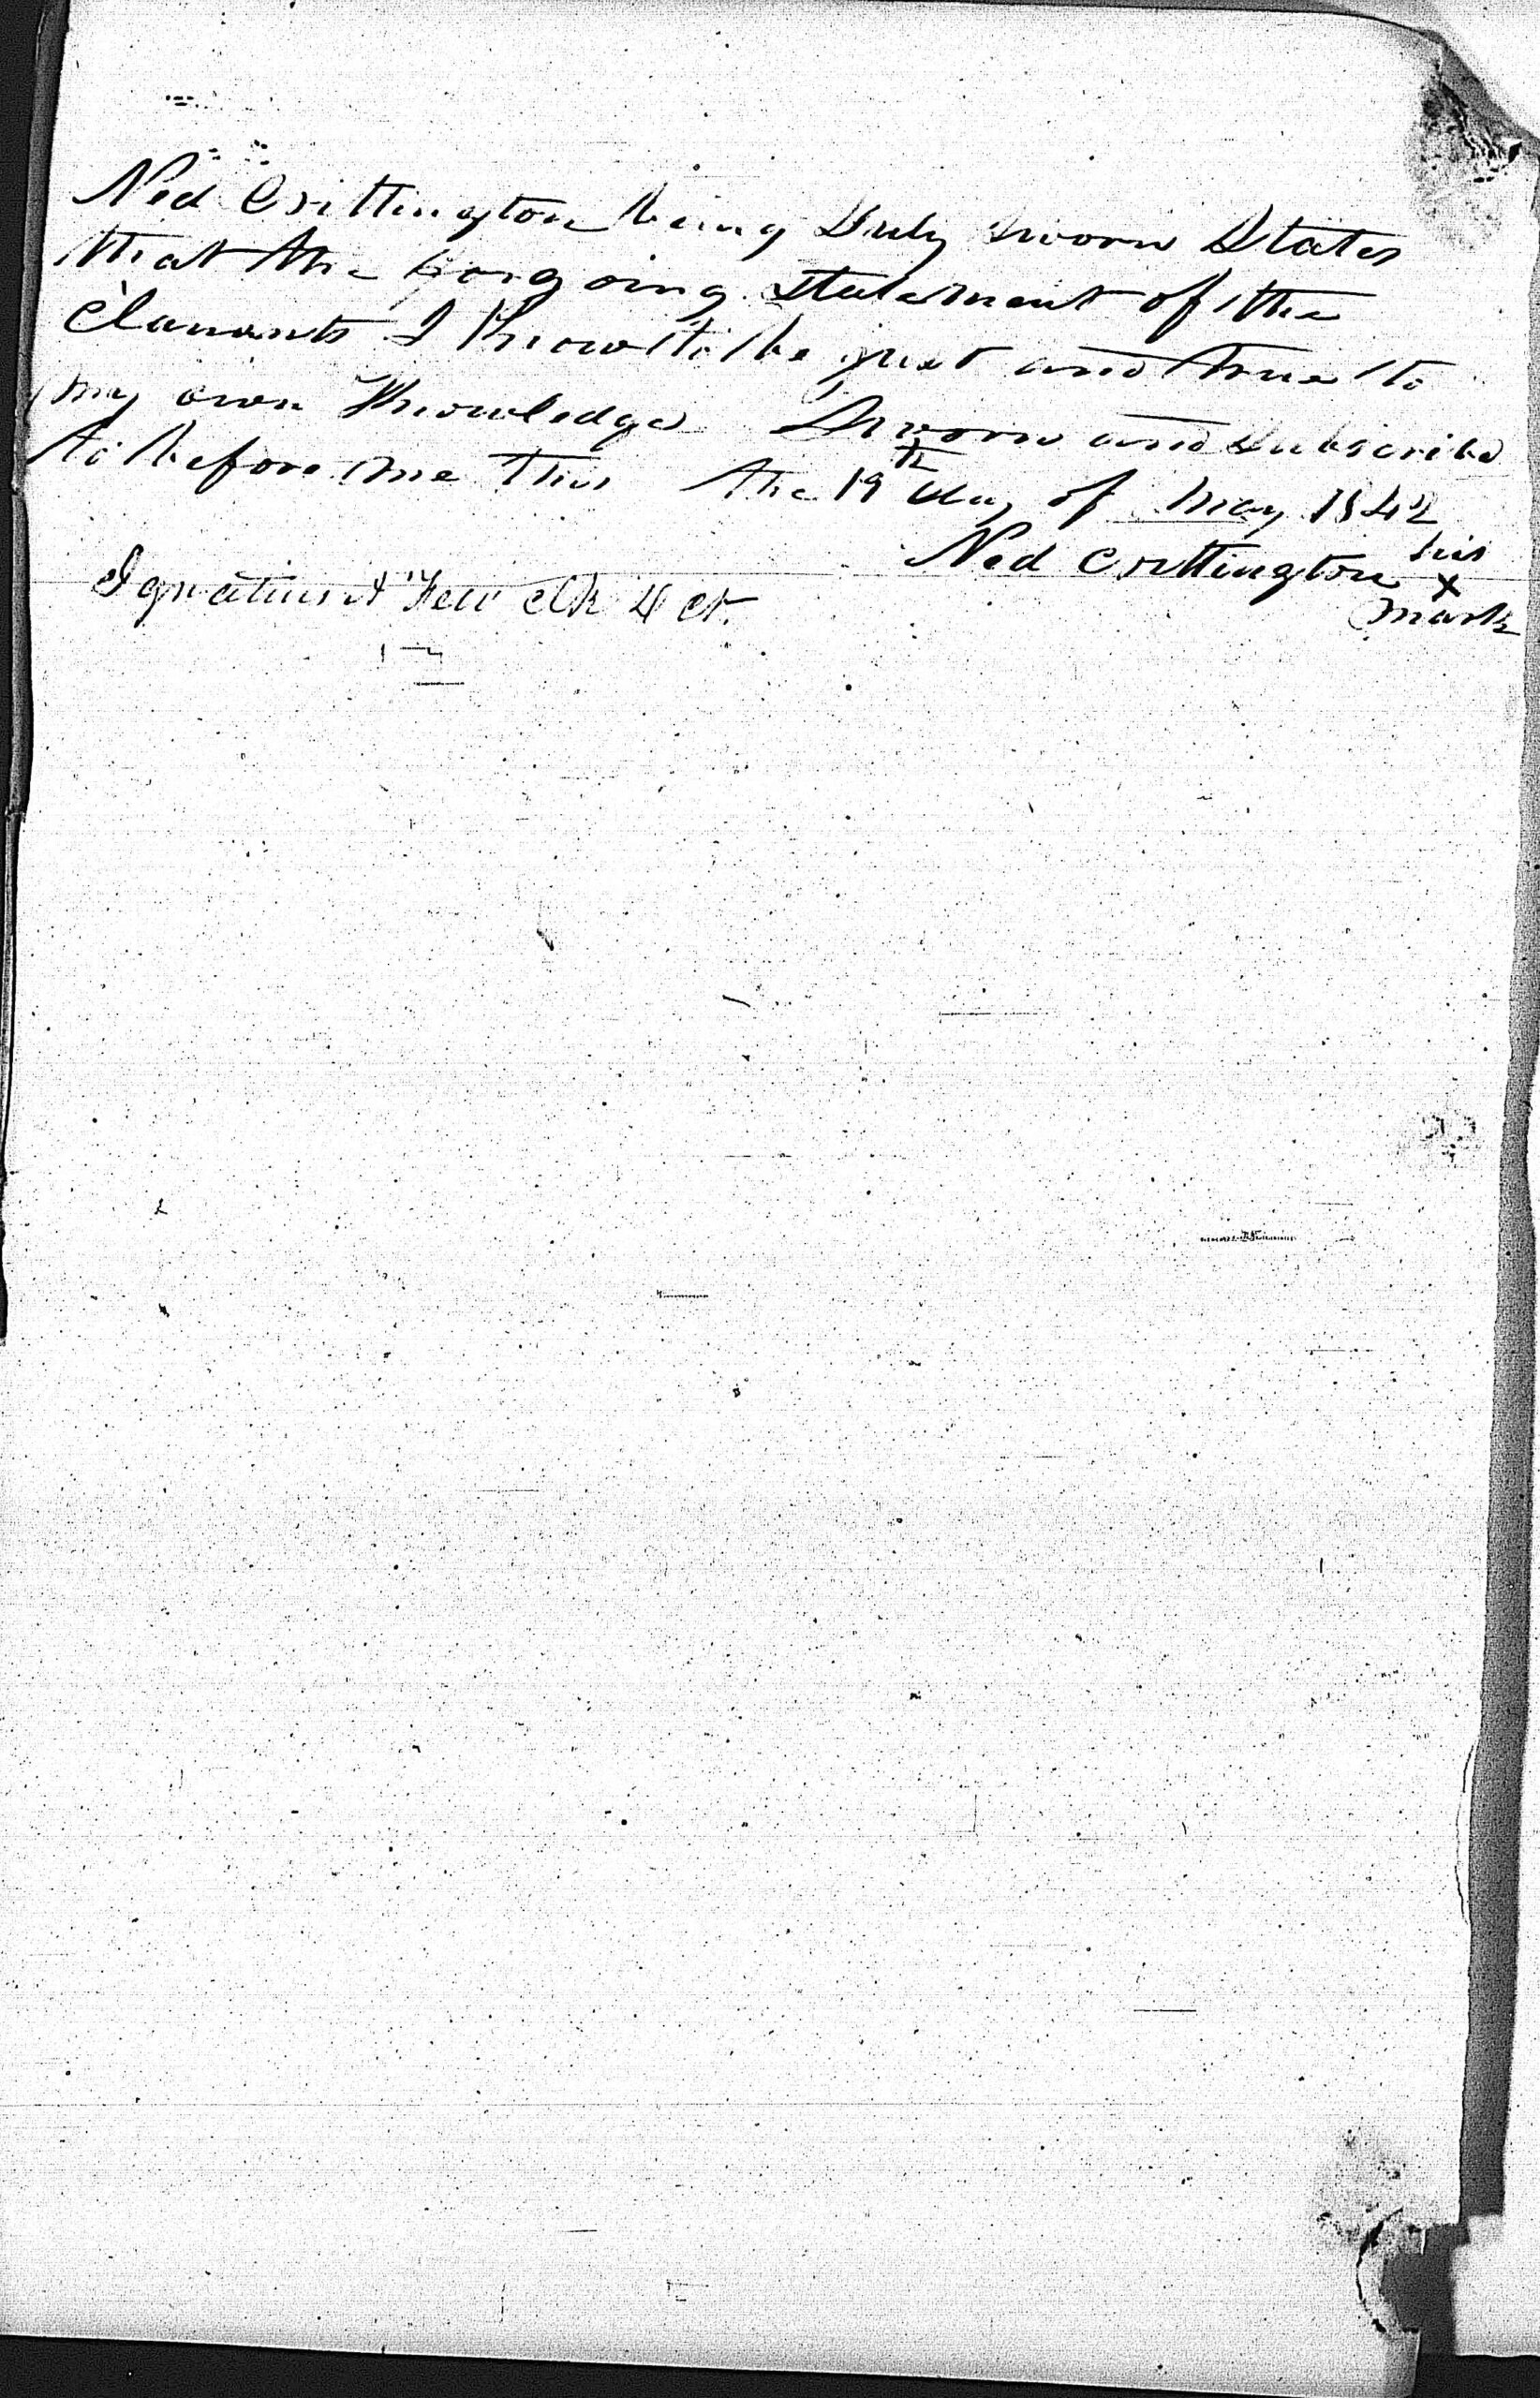 Ned Crittington being Duly Sworn States
that the forgoing statement of the
Clamants I Know to be just and true to
my own Knowledge Sworn and Subscribe
to before me This the 19th day of May 1842
Ned Crittington his
x
mark
Ignatius A Few clk